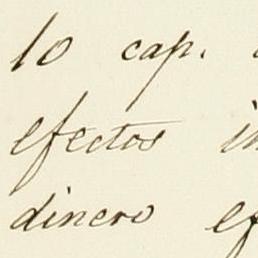 lo cap.
efectos
dinero ef